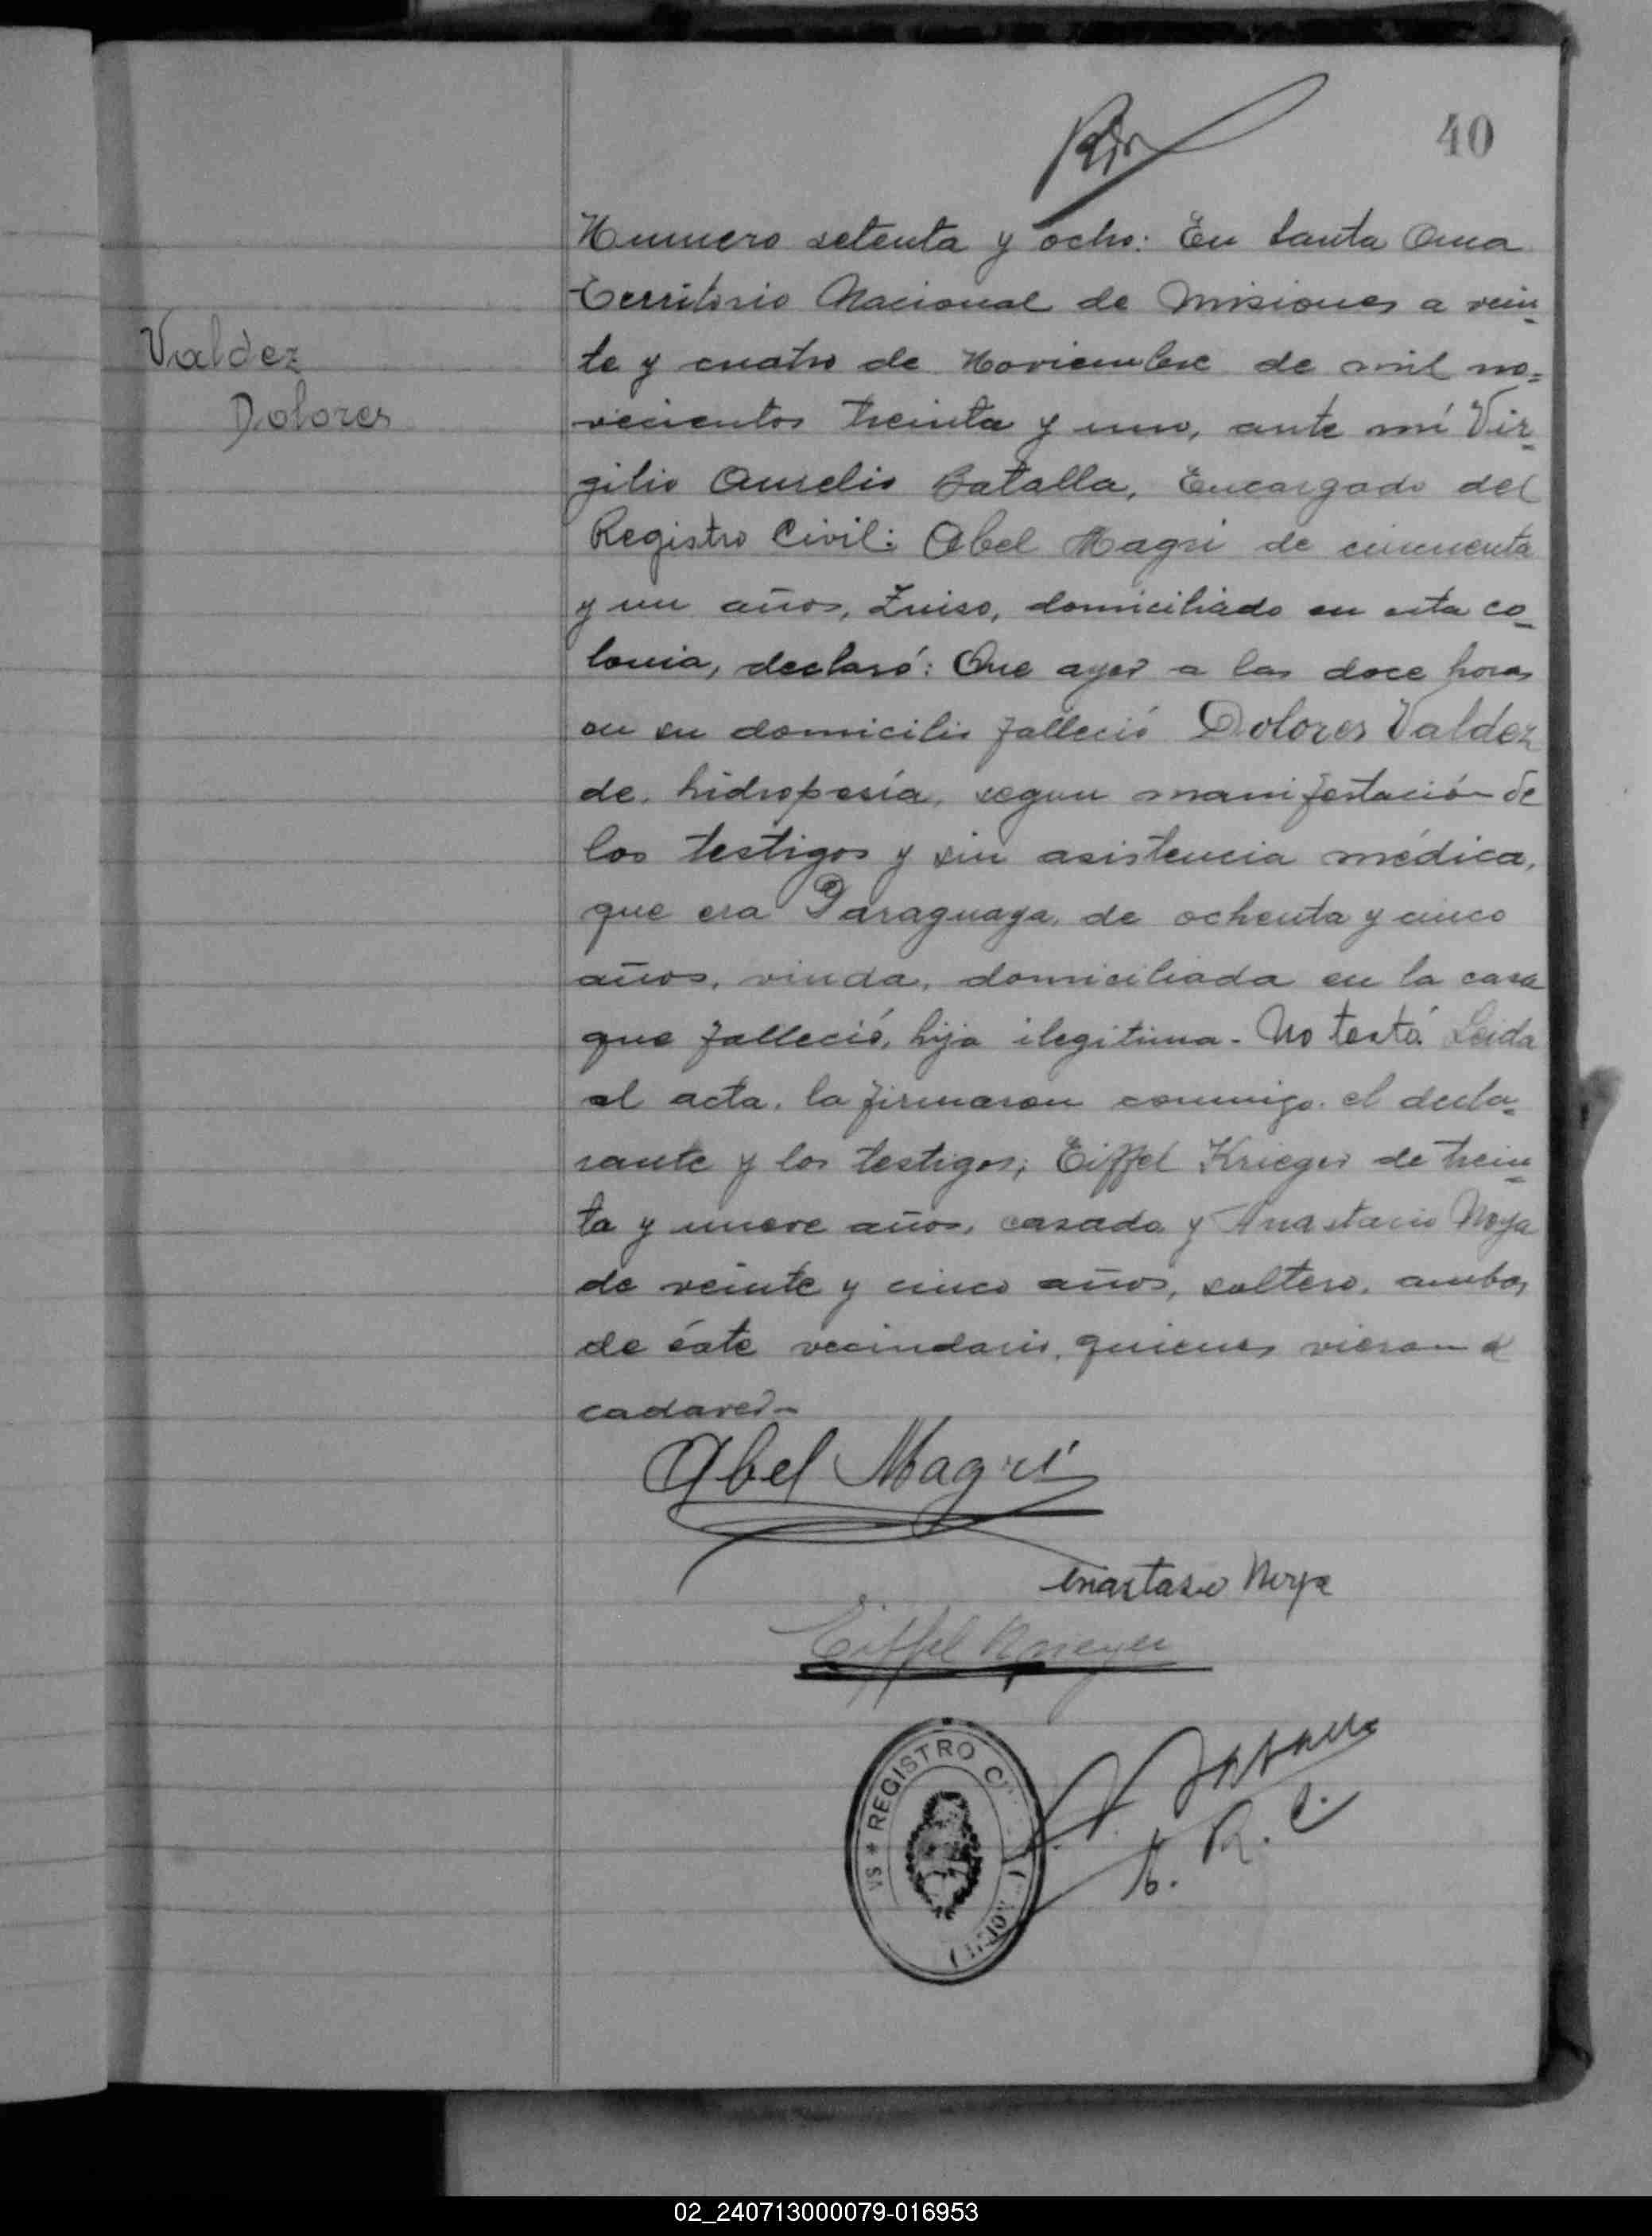 40
Numero setenta y ocho: En Santa Ana
Territorio Nacional de Misiones a vein-
te y cuatro de Noviembre de mil no=
vecientos treinta y uno, ante mí Vir-
gilio Aurelio Batalla, Encargado del
Registro Civil: Abel Magri de cincuenta
y un años, Zuiso, domiciliado en esta co-
lonia, declaró: Que ayer a las doce horas
en su domicilio falleció Dolores Valdez
de hidropesía, segun manifestación de
los testigos y sin asistencia médica,
que era Paraguaya, de ochenta y cinco
años, viuda, domiciliada en la casa
que falleció, hija ilegitima - No testó. Leida
el acta, la firmaron conmigo el decla-
rante y los testigos; Eiffel Krieger de trein-
ta y nueve años, casado y Anastacio Noya
de veinte y cinco años, soltero, ambos
de éste vecindario, quienes vieron el
cadaver-
Valdez
Dolores
Abel Magri
Anastasio Noya
Eiffel Krieger
Batalla
E. R. C.
REGISTRO
02_240713000079-016953